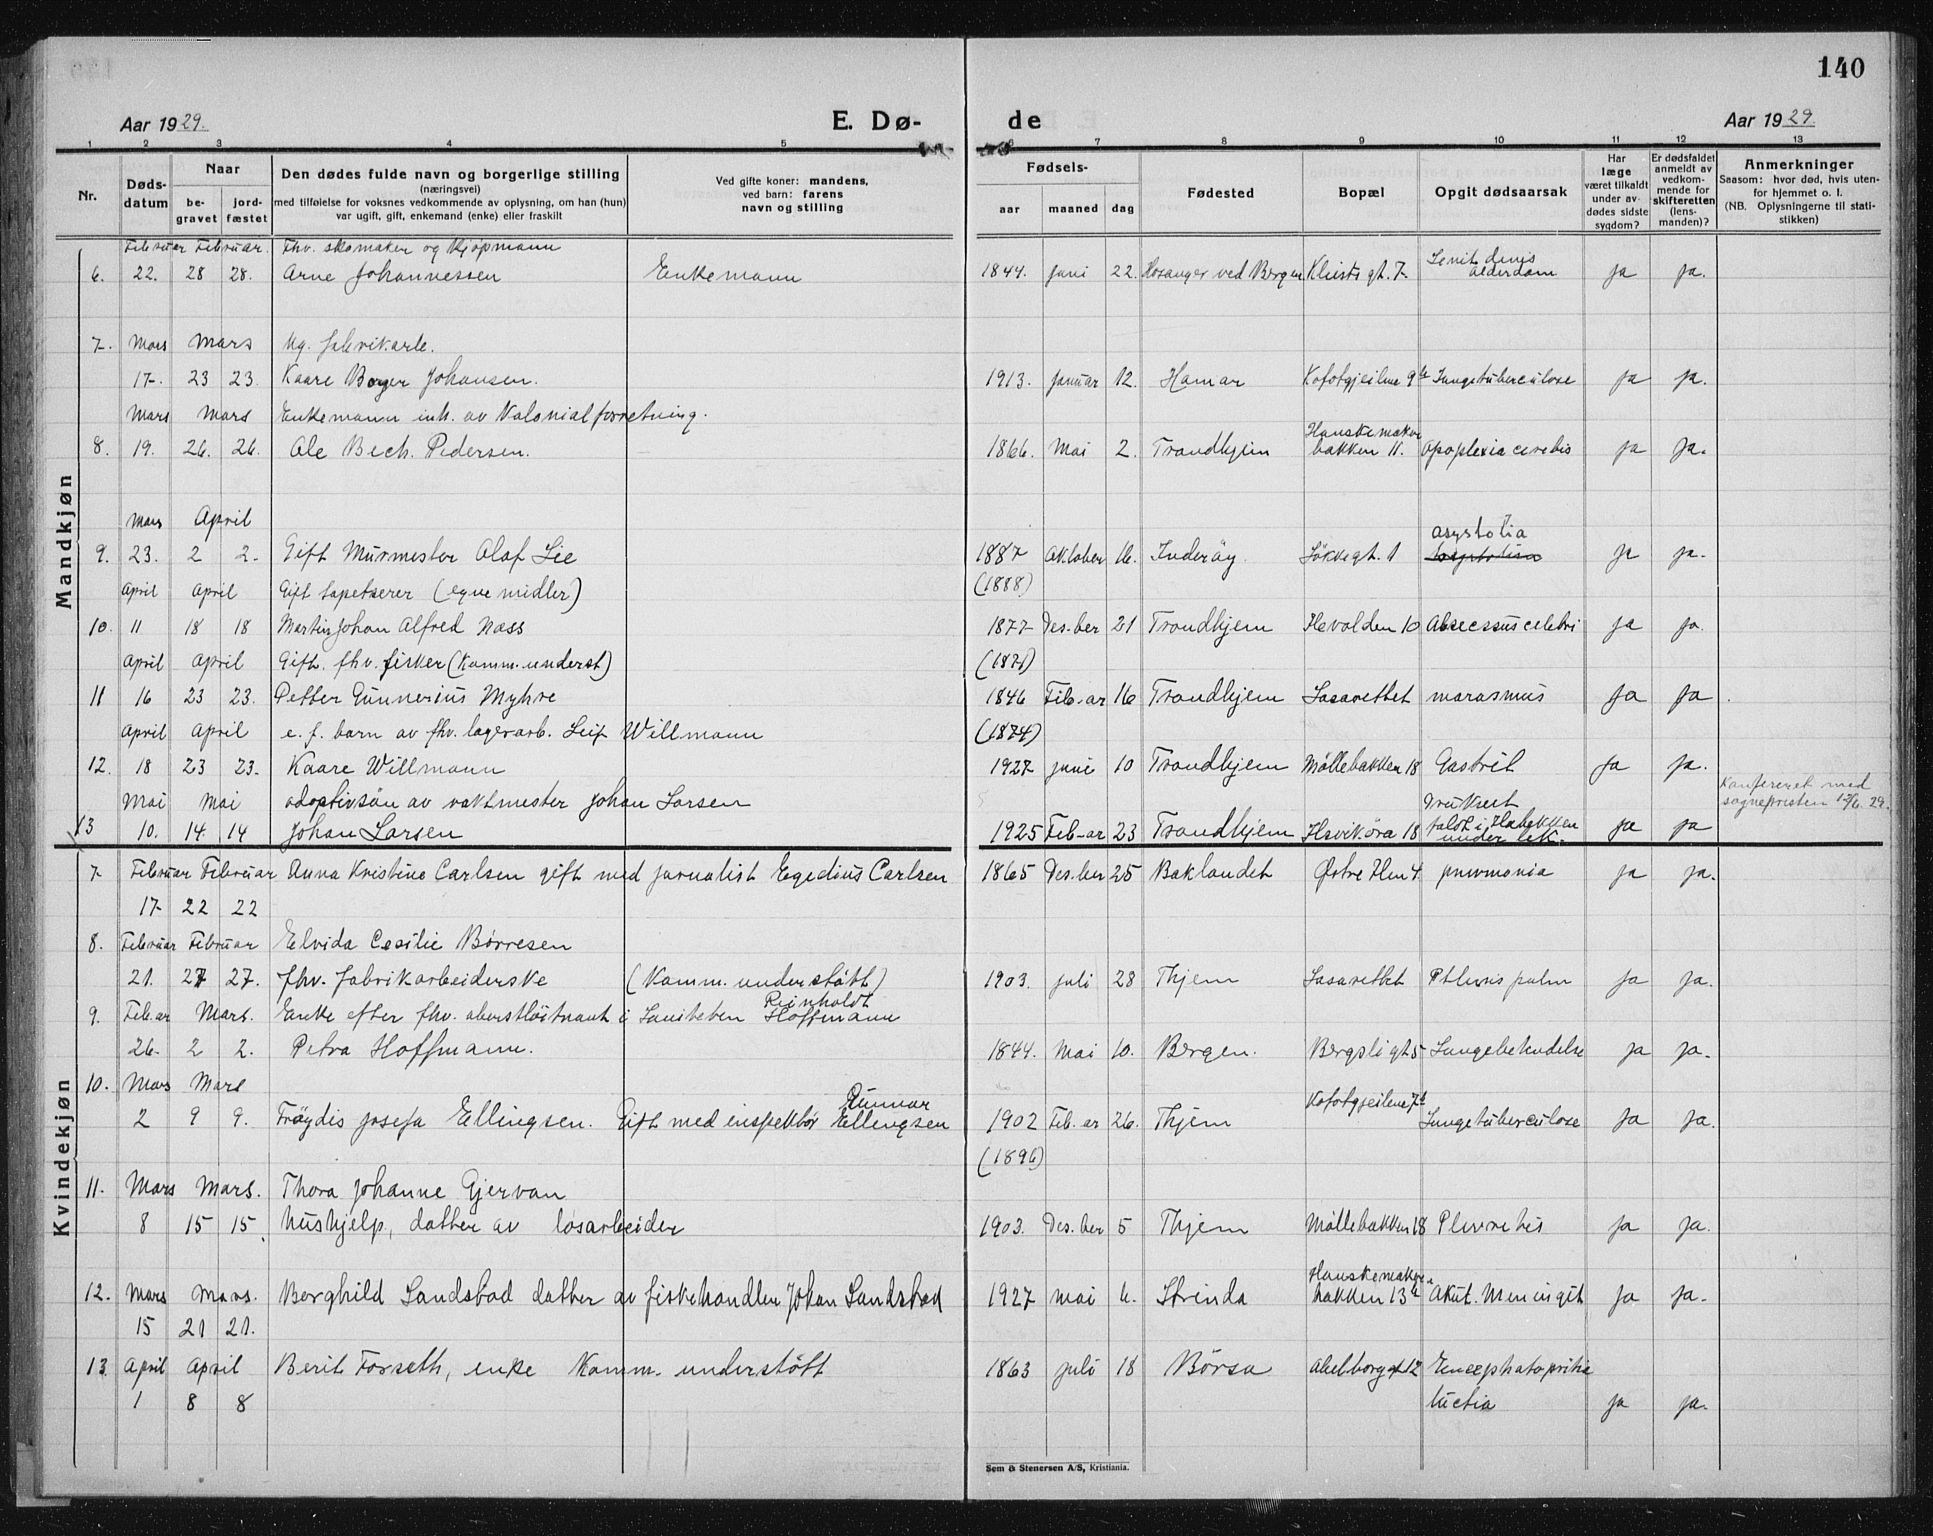 140
Aar 1929.
E. Dø-
de
Aar 1929
1 2 3 4 5 6 7 8 9 10 11 12 13
Nr.
Døds-
datum
Naar
be-
gravet
jord-
fæstet
Den dødes fulde navn og borgerlige stilling
(næringsvei)
med tilføielse for voksnes vedkommende av oplysning, om han (hun)
var ugift, gift, enkemand (enke) eller fraskilt
Ved gifte koner: mandens,
ved barn: farens
navn og stilling
Fødsels-
aar maaned dag
Fødested
Bopæl
Opgit dødsaarsak
Har
læge
været tilkaldt
under av-
dødes sidste
sygdom?
Er dødsfaldet
anmeldt av
vedkom-
mende for
skifteretten
(lens-
manden)?
Anmerkninger
Saasom: hvor død, hvis uten-
for hjemmet o. l.
(NB. Oplysningerne til stati-
stikken)
Mandkjøn
Februar Februar. Fhv. skomaker og kjøpmann
6. 22. 28 28. Arne Johannessen Enkemann 1844. juni 22. Hosanger ved Bergen Kleists gt. 7- alderdom ja ja.
7- Mars Mars Ug. fabrikarb.
17- 23 23. Kaare Borger Johansen. 1913. januar 12. Hamar Lungetuberculose ja ja.
Mars Mars Enkemann inh. av Kolonialforretning.
8. 19. 26. 26. Ole Bech. Pedersen. 1866. Mai 2. Trondhjem Hanskemaker
bakken 11. Apoplexia cerebis ja ja.
Mars April asystolia
9. 23. 2 2. Gift Murmester Olaf Lie 1887 Oktober 16. Inderøy. gt. 1 ja ja.
April April Gift tapetserer (egne midler) (1888)
10. 11 18 18 Martin Johan Alfred Næss 1877- Des.ber 21 Trondhjem Ilevolden 10 Absecssus celebri ja ja.
April April Gift. fhv. fisker (Komm. underst)
11 16 23 23. Petter Gunnerius Myhre 1846 Feb-ar 16 Trondhjem Lasarettet marasmus ja ja
April April e. f. barn av fhv. lagerarb. Leif Willmann (1874)
12. 18 23 23. Kaare Willmann 1927 juni 10 Trondhjem Møllebakken 18 Gastrit ja ja.
Mai Mai adoptivsøn av vaktmester Johan Larsen Konfereret med
sognepresten 12/6. 29.
13 10. 14. 14 Johan Larsen 1925 Feb-ar 23 Trondhjem Ilsvikøra 18 Druknet
faldt i Ilabekken
under lek. ja ja
Kvindekjøn
7- Februar Februar Anna Kristine Carlsen gift med journalist Egedius Carlsen 1865 Des.ber 25 Baklandet Østre Ilen 4. pneumonia ja ja.
17- 22 22
8. Februar Februar Elvida Cesilie Børresen
21. 27 27. fhv. fabrikarbeiderske (Komm. understøtt) 1903. juli 28 Thjem Lasarettet Pthisis pulm ja ja.
Reinholdt
9. Feb.ar Mars. Enke efter fhv. oberstløitnant i Saniteten Hoffmann
26. 2 2. Petra Hoffmann. 1844. Mai 10. Bergen. Bergsligt 5 Lungebetendelse ja ja.
10. Mars Mars
Gunnar
2 9 9. Frøydis Josefa Ellingsen. Gift med inspektør Ellingsen 1902 Feb. ar 26. Thjem Lungetuberculose ja ja.
(1896)
11. Mars Mars. Thora Johanne Gjervan
8 15 15. hushjelp, datter av løsarbeider 1903. Des.ber 5 Thjem Møllebakken 18 Plevretis ja ja.
12. Mars Mars. Borghild Sandstad datter av fiskehandler Johan Sandstad 1927 mai 6. Strinda Hanskemaker
bakken 13 Akut. Meningit ja ja.
15 21 21.
13. April April Berit Forseth, enke Komm. understøtt 1863 juli 18 Børsa
1 8 8 luetia ja ja.
Sem & Stenersen A/S, Kristiania.